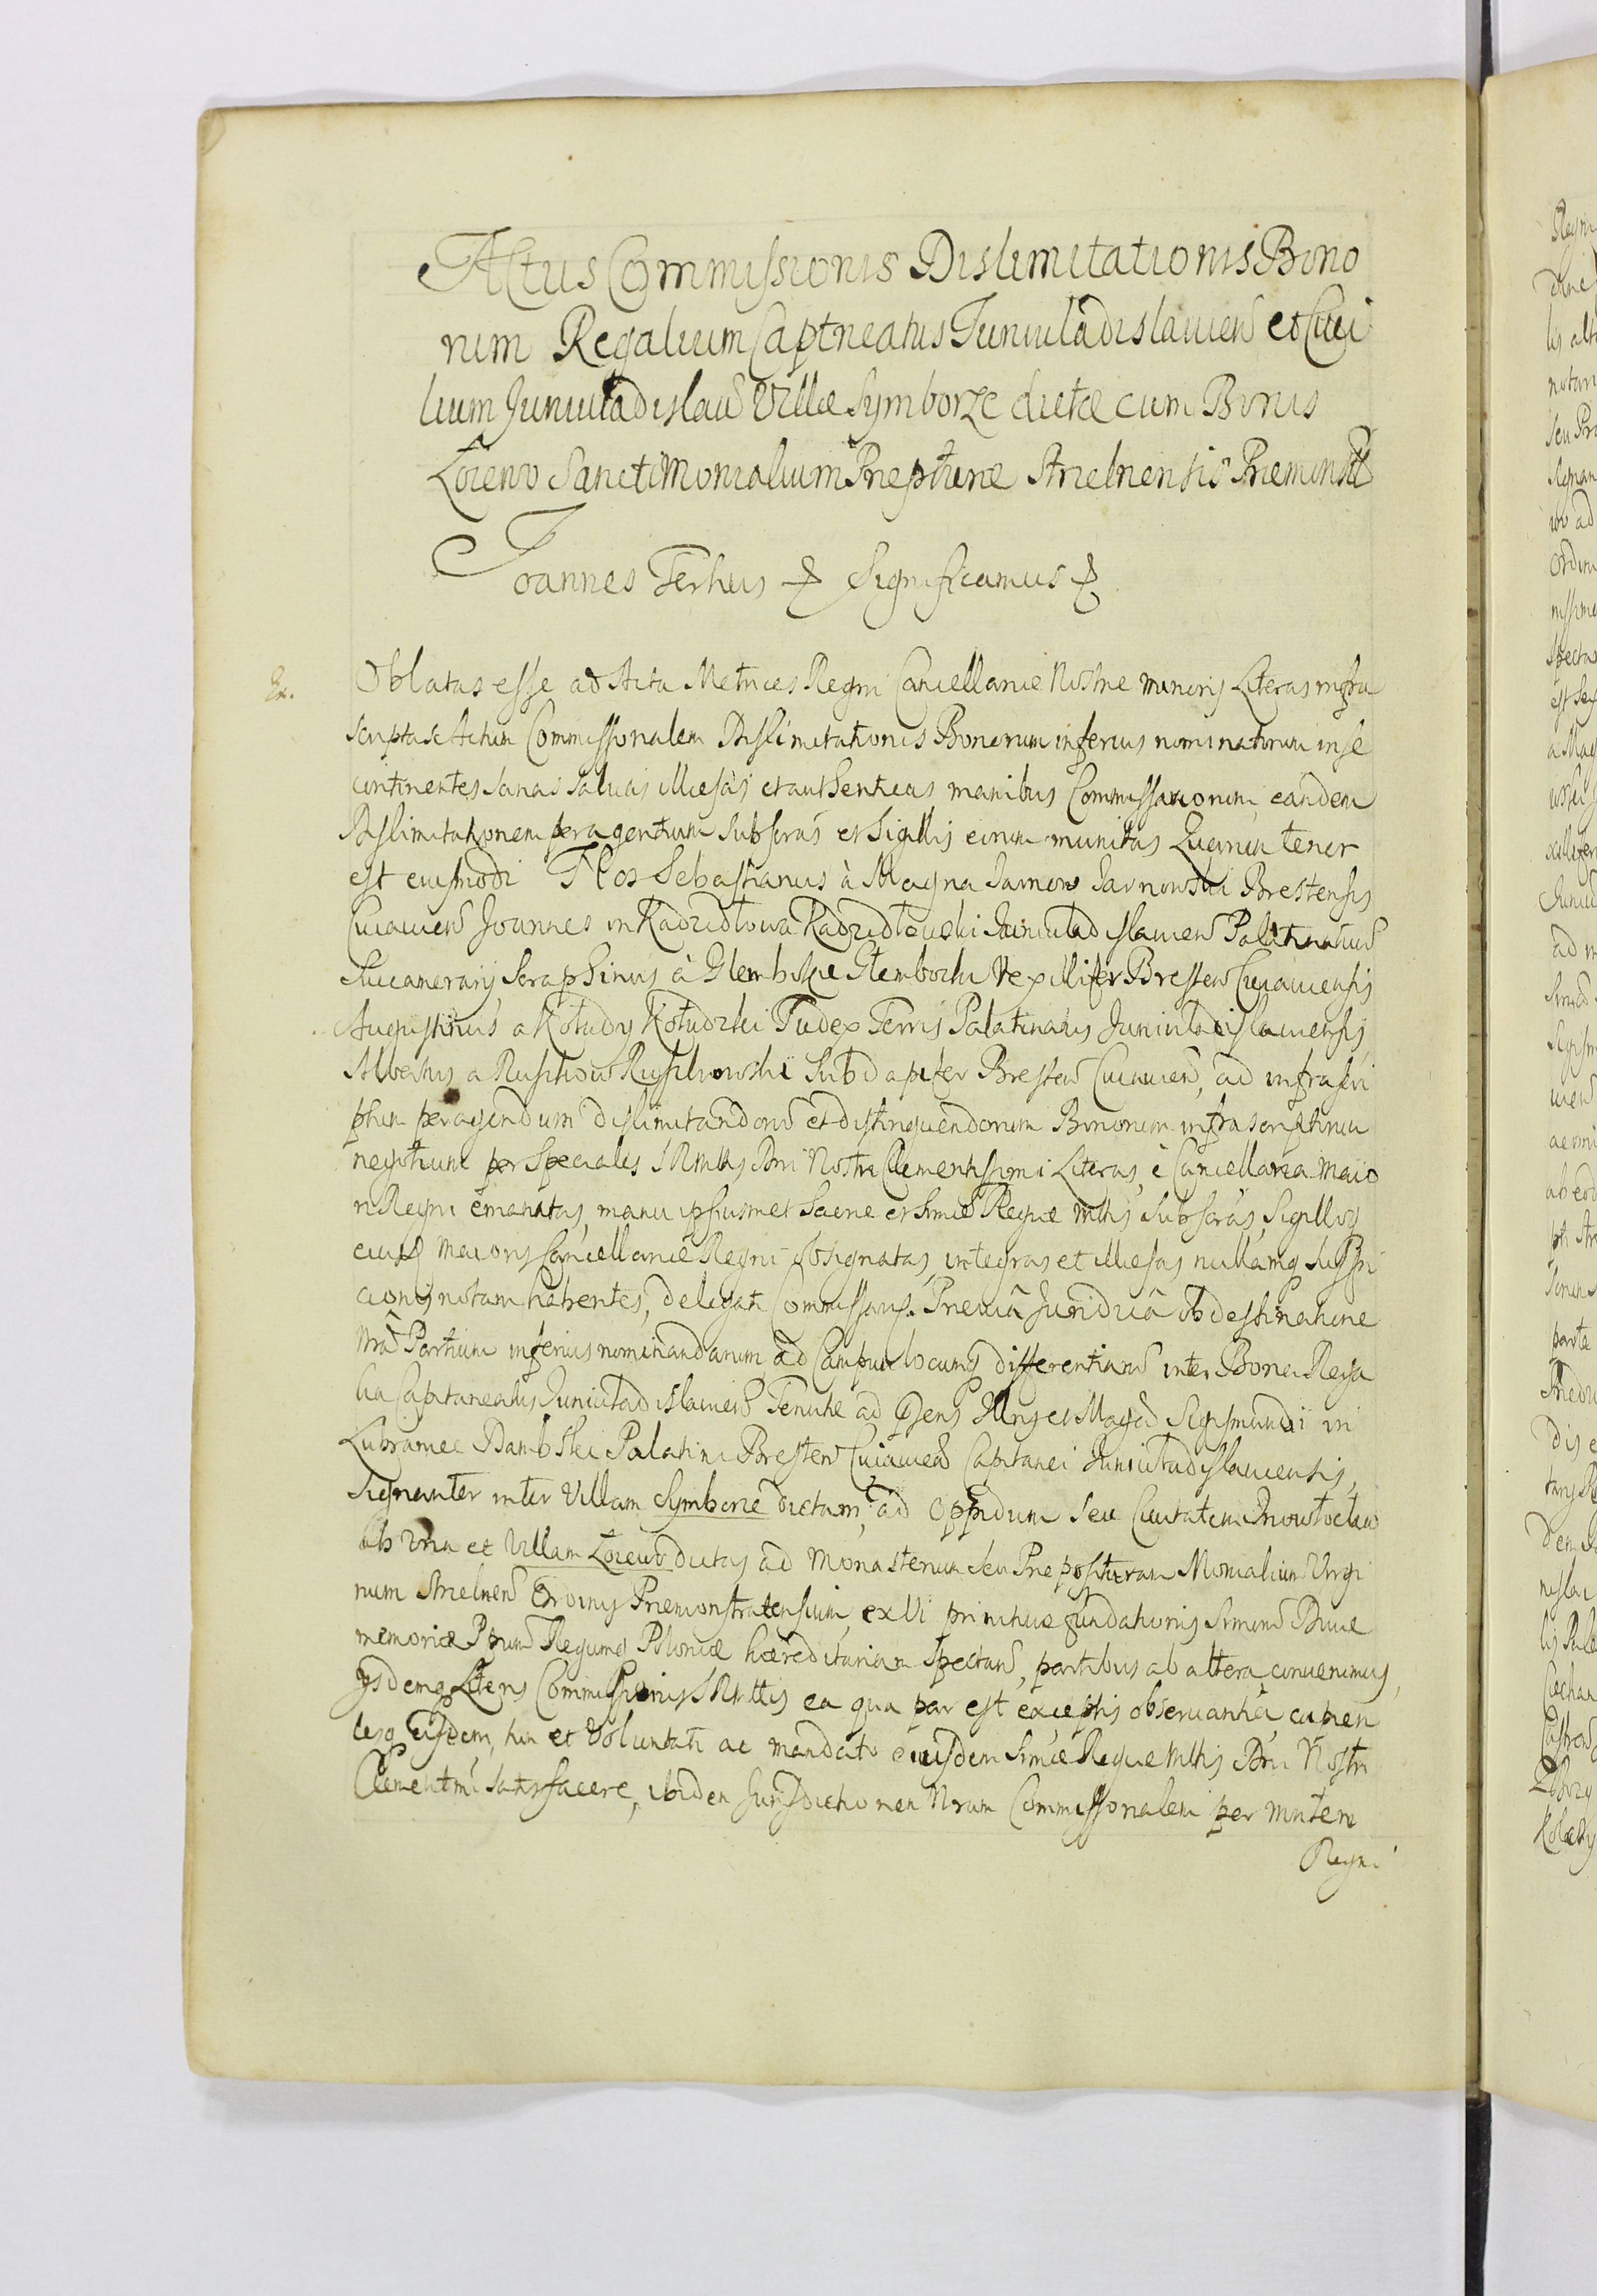 Actus Commissionis Dislimitationis Bono
rum Regalium Captneatus Juniuladislauien et Ciui
lium Juniuladislau Villæ Symborze dictæ cum Bonis
Łoiewo Sanctimonialium Præpturæ Strzelnensis Præmonst
Joannes Tertius Significamus
Ex. Oblatas esse ad Acta Metrices Regni Cancellariæ Nostræ minoris Literas infra
scriptas Actum Commissionalem Dislimitationis Bonorum inferius nominatorum in se
continentes sanas saluas illæsas et authenticas manibus Commissariorum eandem
Dislimitationem peragentium subscras et Sigillis eorum munitas Quarum tenor
est eiusmodi Nos Sebastianus à Magna Sarnow Sarnowski Brestensis
Cuiauien Joannes in Kadzidłowa Kadzidłowski Juniuladislauien Palatinatuu
Succamerarij Seraphinus à Glembokie Glembocki Vexillifer Bresten Cuiauiensis
Augustinus a Kołudy Kołudzki Judex Terris Palatinatus Juniuladislauiensis
Albertus a Ruszkow Ruszkowski Subdapifer Bresten Cuiauien, ad infrascri
ptum peragendum dislimitandoru et distinguendorum Bonorum infrascriptorum
negotium per Speciales SRMttis Dni Nostri Clementissimi Literas, è Cancellaria Maio
ri Regni emanatas, manu ipsiusmet Sacræ et Srmæ Regiæ Mttis Subscras, Sigilloq
eiusd Maioris Cancellariæ Regni obsignatas, integras et illæsas nullamq suspi
cionis notam habentes, delegati Commissarij. Præuiâ Juridicâ obdestinatione
nrâ Partium inferius nominandarum ad Campum locumq differentiaru inter Bona Rega
lia Capitaneatus Juniuladislauien Tenutæ ad præsens Illris et Magci Sigismundi in
Lubraniec Dambski Palatini Bresten Cuiauien Capitanei Juniuladislauiensis,
Signanter inter Villam Symborze dictam, ad Oppidum seu Ciuitatem Inowłocław
ab vna et Villam Łoiewo dictas ad Monasterium seu Præposituram Monialium Virgi
num Strzelnen Ordinis Præmonstratensium, ex vi primitiuæ fundationis Srmorum Diuæ
memoriæ Ppum Regumq Poloniæ hæreditariam spectan, partibus ab altera conuenimus,
Ijsdemq Literis Commissionis SRMttis ea qua par est exceptis obseruantia, cupien
tesq eisdem, tum et Voluntati ac mandato eiusdem Srmæ Regiæ Mttis Dni Nostri
Clementmi satisfacere, ibidem Jurisdictionem Nram Commissionalem per Mnrem
Regni